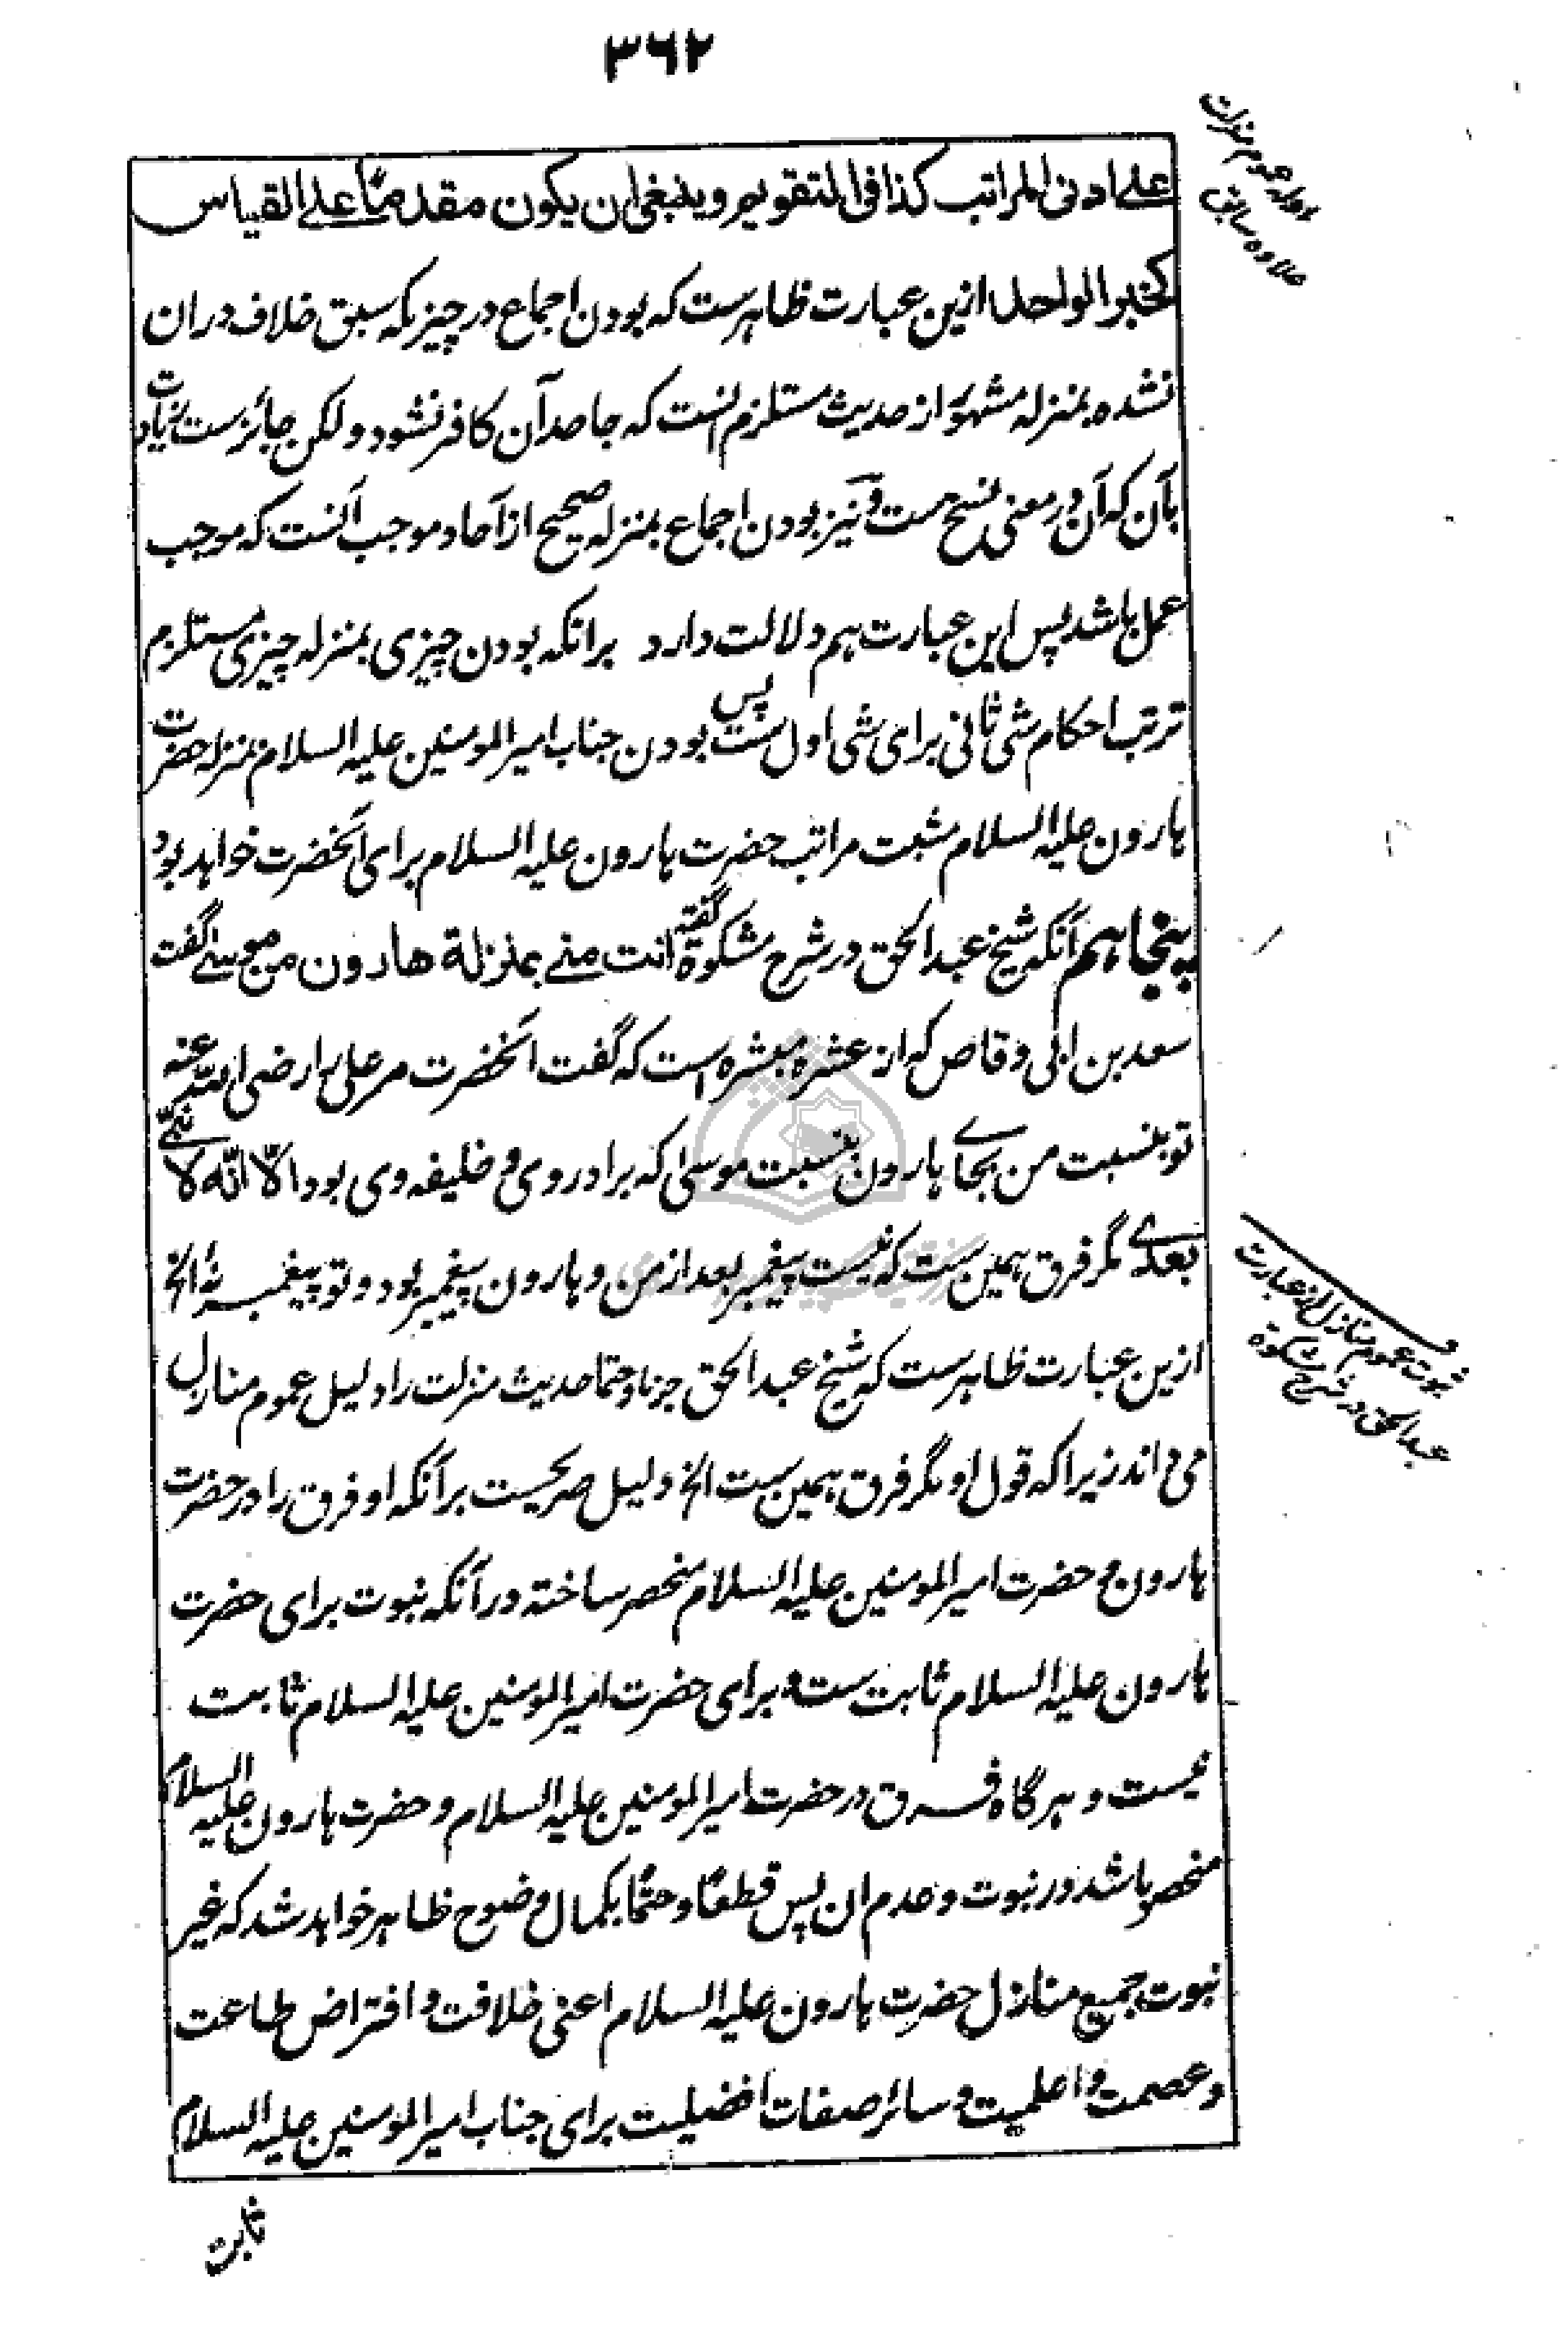 ۳۶۲
ادله عموم منزلت
علاوه سابق
علے ادنی المراتب کذا فی التقویم و ینبغی ان یکون مقدمًا علی القیاس
کخبر الواحد ازین عبارت ظاہرست کہ بودن اجماع در چیزیکہ سبق خلاف دران
نشدہ بمنزلہ مشہور از حدیث مستلزم آنست کہ جاحد آن کافر نشود و لکن جائزست زیادت
بآن کہ آن در معنی نسخ ست و نیز بودن اجماع بمنزلہ صحیح از آحاد موجب آنست کہ موجب
عمل باشد پس این عبارت ہم دلالت دارد برانکہ بودن چیزی بمنزلہ چیزی مستلزم
ترتب احکام شی ثانی برای شی اول ست پس بودن جناب امیر المومنین علیہ السلام بمنزلہ حضرت
ہارون علیہ السلام مثبت مراتب حضرت ہارون علیہ السلام برای آنحضرت خواہد بود
پنجاہم آنکہ شیخ عبد الحق در شرح مشکوة گفتہ انت منے بمنزلة هارون من موسے گفت
سعد بن ابی وقاص کہ از عشرہ مبشرہ است کہ گفت آنحضرت مر علی را رضی اللہ عنہ
تو بنسبت من بجاے ہارون بنسبت موسیٰ کہ برادر وی و خلیفہ وی بود الّا انّہ لا نبیّ
بعدے مگر فرق ہمین ست کہ نیست پیغمبر بعد از من و ہارون پیغمبر بود و تو پیغمبر نۂ الخ
ثبوت عموم منازل از عبارت
عبد الحق در شرح مشکوة
ازین عبارت ظاہرست کہ شیخ عبد الحق جزما و حتما حدیث منزلت را دلیل عموم منازل
می داند زیرا کہ قول او مگر فرق ہمین ست الخ دلیل صریحست بر آنکہ او فرق را در حضرت
ہارون و حضرت امیر المومنین علیہ السلام منحصر ساختہ در آنکہ نبوت برای حضرت
ہارون علیہ السلام ثابت ست و برای حضرت امیر المومنین علیہ السلام ثابت
نیست و ہر گاہ فرق در حضرت امیر المومنین علیہ السلام و حضرت ہارون علیہ السلام
منحصر باشد در نبوت و عدم ان پس قطعًا و حتمًا بکمال وضوح ظاہر خواہد شد کہ غیر
نبوت جمیع منازل حضرت ہارون علیہ السلام اعنی خلافت و افتراض طاعت
و عصمت و اعلمیت و سائر صفات افضلیت برای جناب امیر المومنین علیہ السلام
ثابت